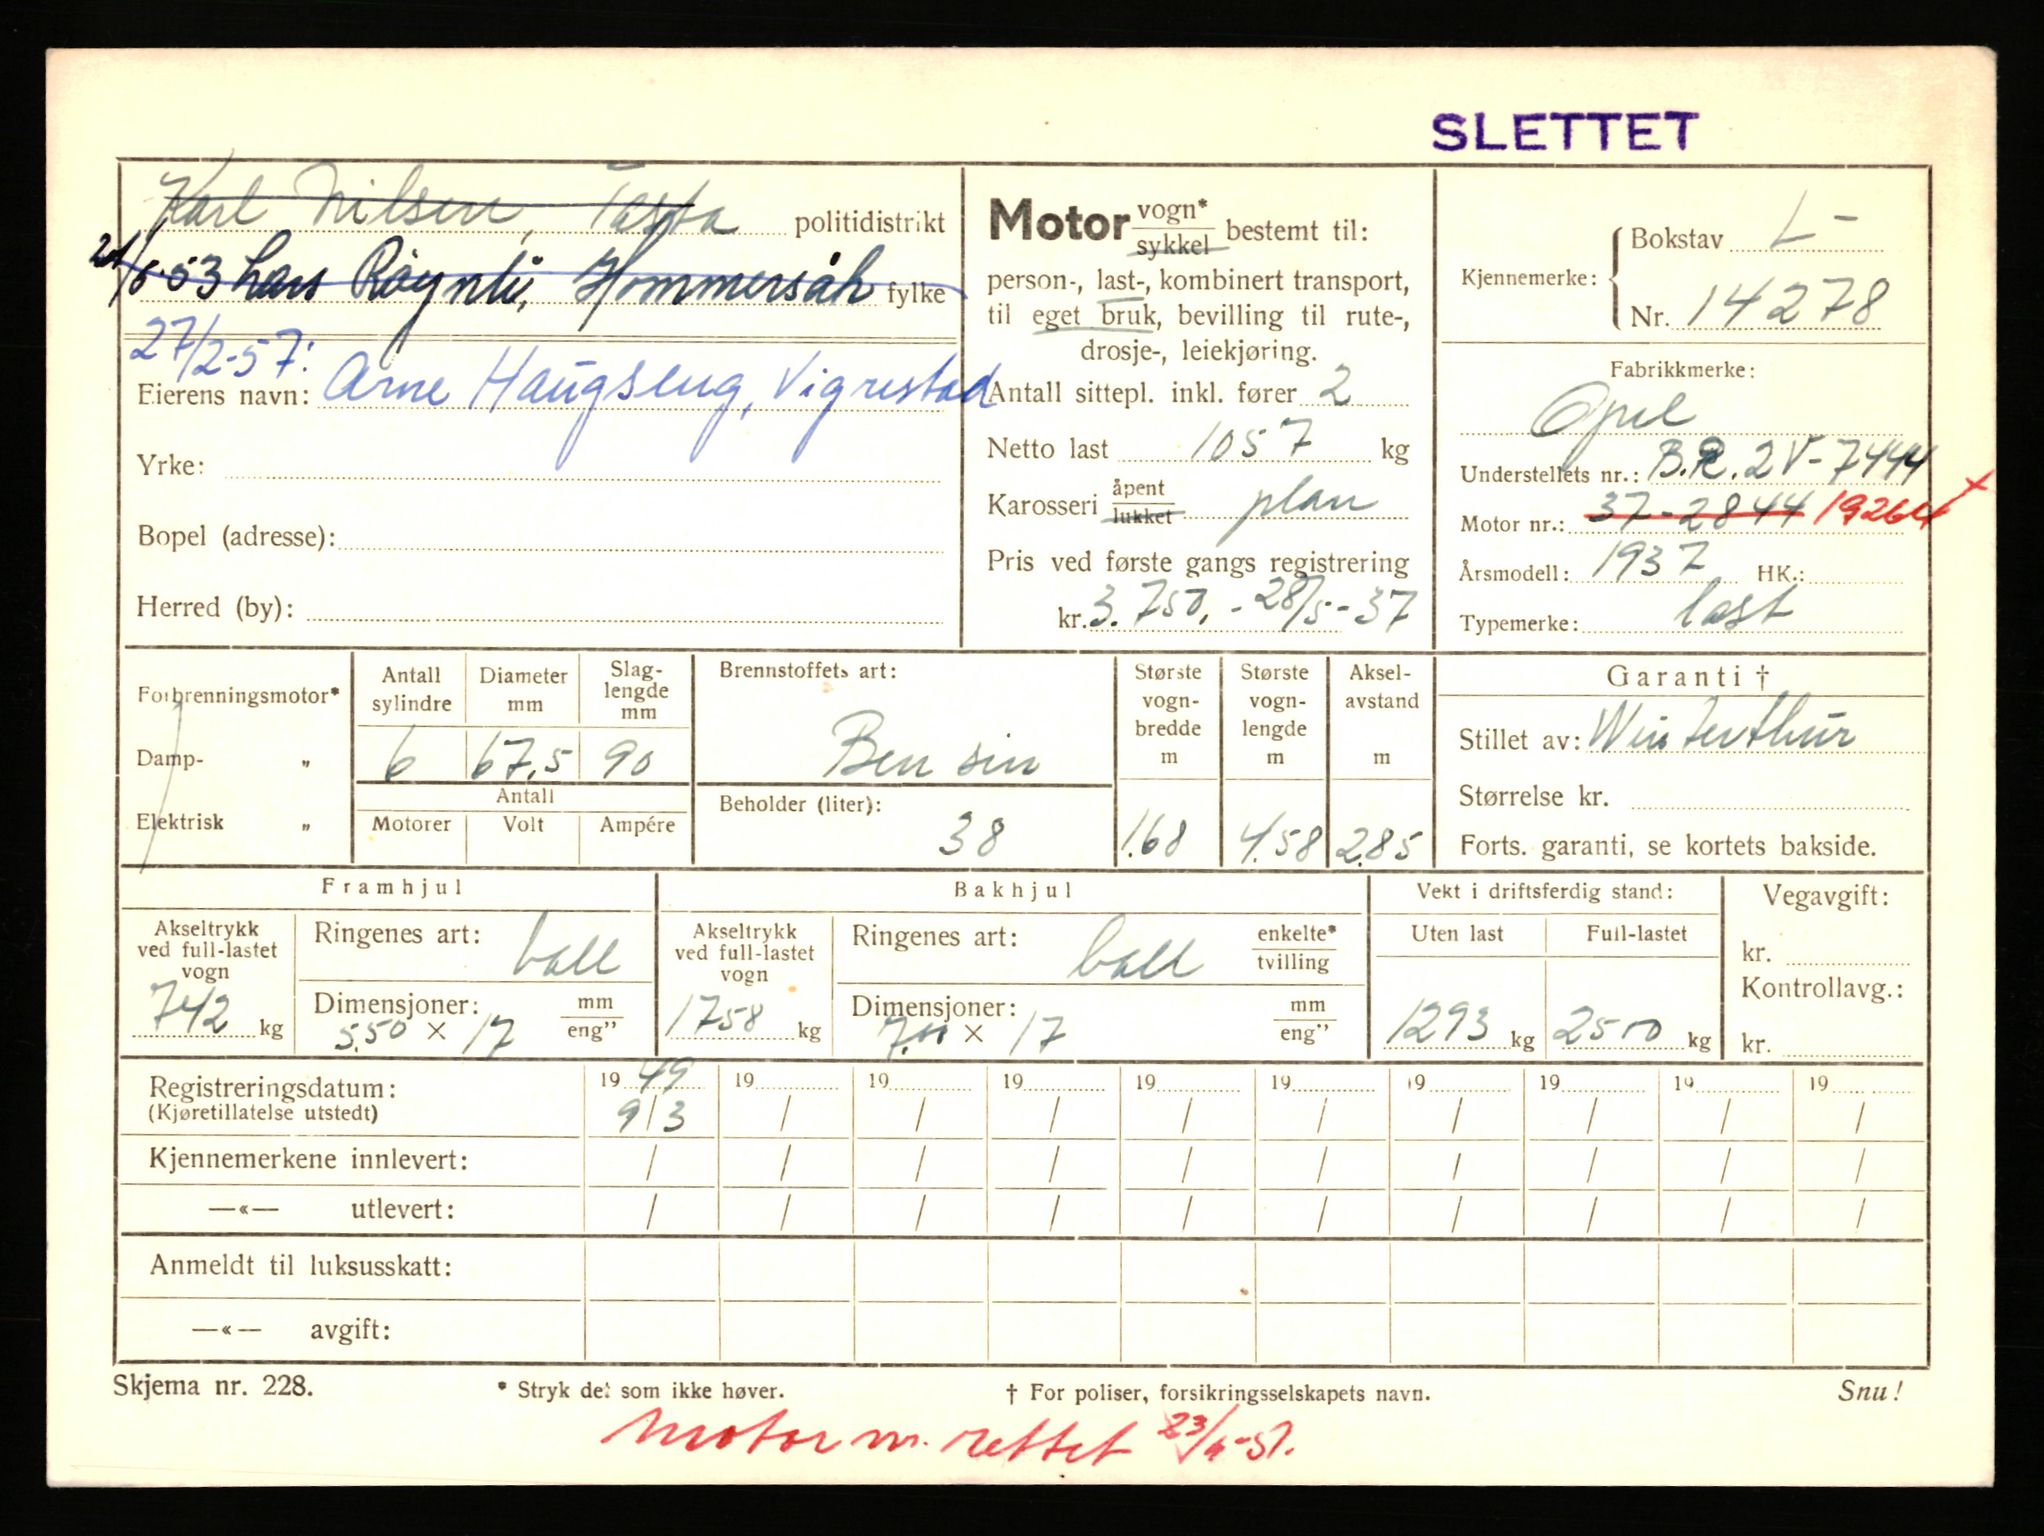 SLETTET
Karl Nilsen, Tasta politidistrikt
21/5-53 Lars Röynli, Hommersåk fylke
27/2-57:
Eierens navn: Arne Haugseng, Vigrestad
Yrke:
Bopel (adresse):
Herred (by):
Motor vogn* / sykkel bestemt til:
person-, last-, kombinert transport,
til eget bruk, bevilling til rute-,
drosje-, leiekjøring.
Antall sittepl. inkl. fører 2
Netto last 1057 kg
Karosseri åpent / lukket plan
Pris ved første gangs registrering
kr. 3.750,- 28/5-37
Kjennemerke: Bokstav L-
Nr. 14278
Fabrikkmerke:
Opel
Understellets nr.: B.R.2V-7444
Motor nr.: 37-2844 19264 x
Årsmodell: 1937 HK.:
Typemerke: last
Forbrenningsmotor*
Damp- „
Elektrisk „
Antall sylindre 6
Diameter mm 67,5
Slag-lengde mm 90
Antall
Motorer Volt Ampére
Brennstoffets art:
Bensin
Beholder (liter):
38
Største vogn-bredde m 1.68
Største vogn-lengde m 4.58
Aksel-avstand m 2.85
Garanti †
Stillet av: Winterthur
Størrelse kr.
Forts. garanti, se kortets bakside.
Framhjul
Akseltrykk ved full-lastet vogn 742 kg
Ringenes art: ball
Dimensjoner: mm / eng”
5.50 × 17
Bakhjul
Akseltrykk ved full-lastet vogn 1758 kg
Ringenes art: ball enkelte* / tvilling
Dimensjoner: mm / eng”
7.00 × 17
Vekt i driftsferdig stand:
Uten last Full-lastet
1293 kg 2500 kg
Vegavgift:
kr.
Kontrollavg.:
kr.
Registreringsdatum: 19 49 19 19 19 19 19 19 19 19 19
(Kjøretillatelse utstedt) 9/3 / / / / / / / / /
Kjennemerkene innlevert: / / / / / / / / / /
—«— utlevert: / / / / / / / / / /
Anmeldt til luksusskatt:
—«— avgift:
Skjema nr. 228. * Stryk det som ikke høver. † For poliser, forsikringsselskapets navn. Snu!
Motor nr. rettet